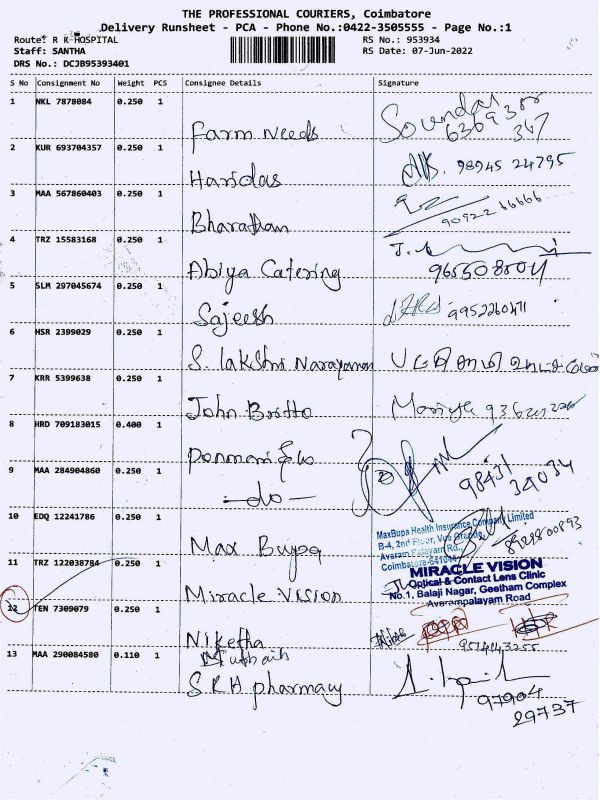 THE PROFESSIONAL COURIERS, Coimbatore
Delivery Runsheet - PCA - Phone No.:0422-3505555 - Page No.:1
Route: R K HOSPITAL RS No.: 953934
Staff: SANTHA RS Date: 07-Jun-2022
DRS No.: DCJB95393401
S No Consignment No Weight PCS Consignee Details Signature
1 NKL 7878084 0.250 1
Farm Needs
2 KUR 693704357 0.250 1
Haridas 98945 24795
3 MAA 567860403 0.250 1
Bharathan 90922 66666
4 TRZ 15583168 0.250 1
Abiya Catering
5 SLM 297045674 0.250 1
Sajeesh
6 HSR 2399029 0.250 1
S. Lakshmi Narayanan
7 KRR 5399638 0.250 1
John Britto
8 HRD 709183015 0.400 1
9 MAA 284904860 0.250 1
98431
34034
-do-
10 EDQ 12241786 0.250 1
MaxBupa Health Insurance Company Limited
B-4, 2nd Floor, Vue Grande,
Avaram Palayam Rd.,
Coimbatore-641044
Max Bupa
11 TRZ 122038784 0.250 1
MIRACLE VISION
Optical & Contact Lens Clinic
No.1, Balaji Nagar, Geetham Complex
Avarampalayam Road
Miracle VISION
12 TEN 7309079 0.250 1
Niketha
13 MAA 290084580 0.110 1
S.R.H pharmacy
97904
29737